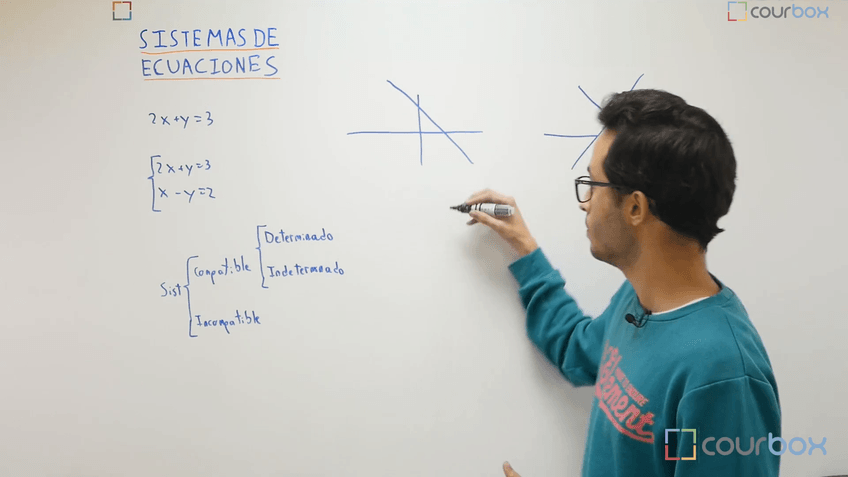 courbox
SISTEMAS DE
ECUACIONES
2x+y=3
2x+y=3
x-y=2
Sist
Compatible
Determinado
Indeterminado
Incompatible
element
courbox